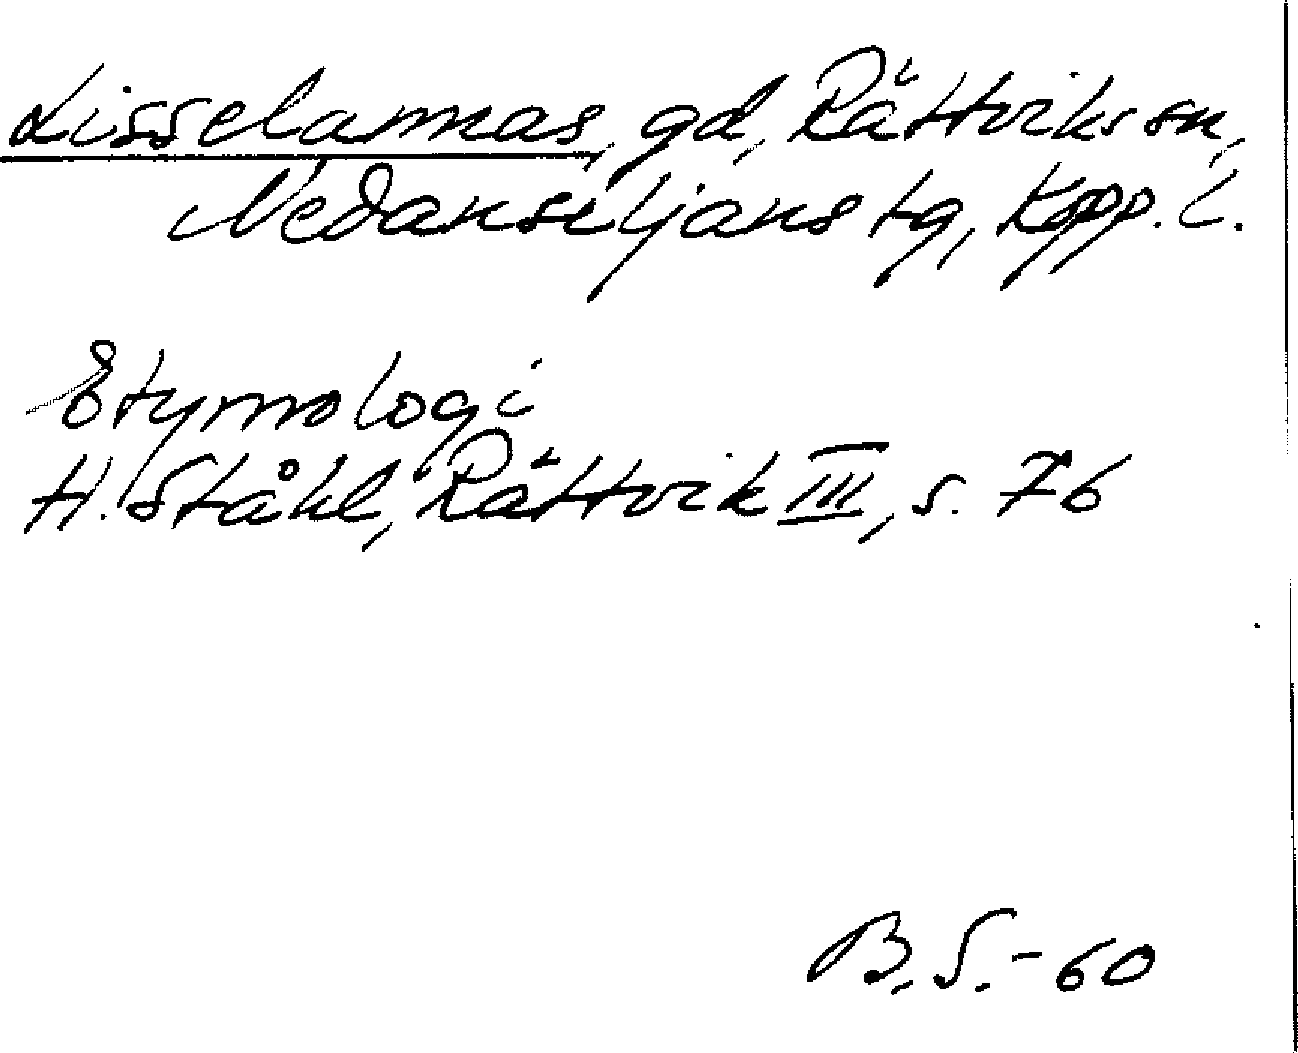 Lisselannas, gd, Rättviks sn,
Nedansiljans tg, Kopp. l.
Etymologi
H. Ståhl, Rättvik III, s. 76
B. S. - 60